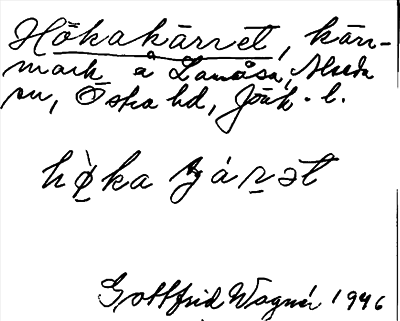 Hökakärret, kärr-
mark å Lanåsa, Alseda
sn, Östra hd, Jönk. l.
hø̀ka çárət
Gottfrid Wagnér 1946